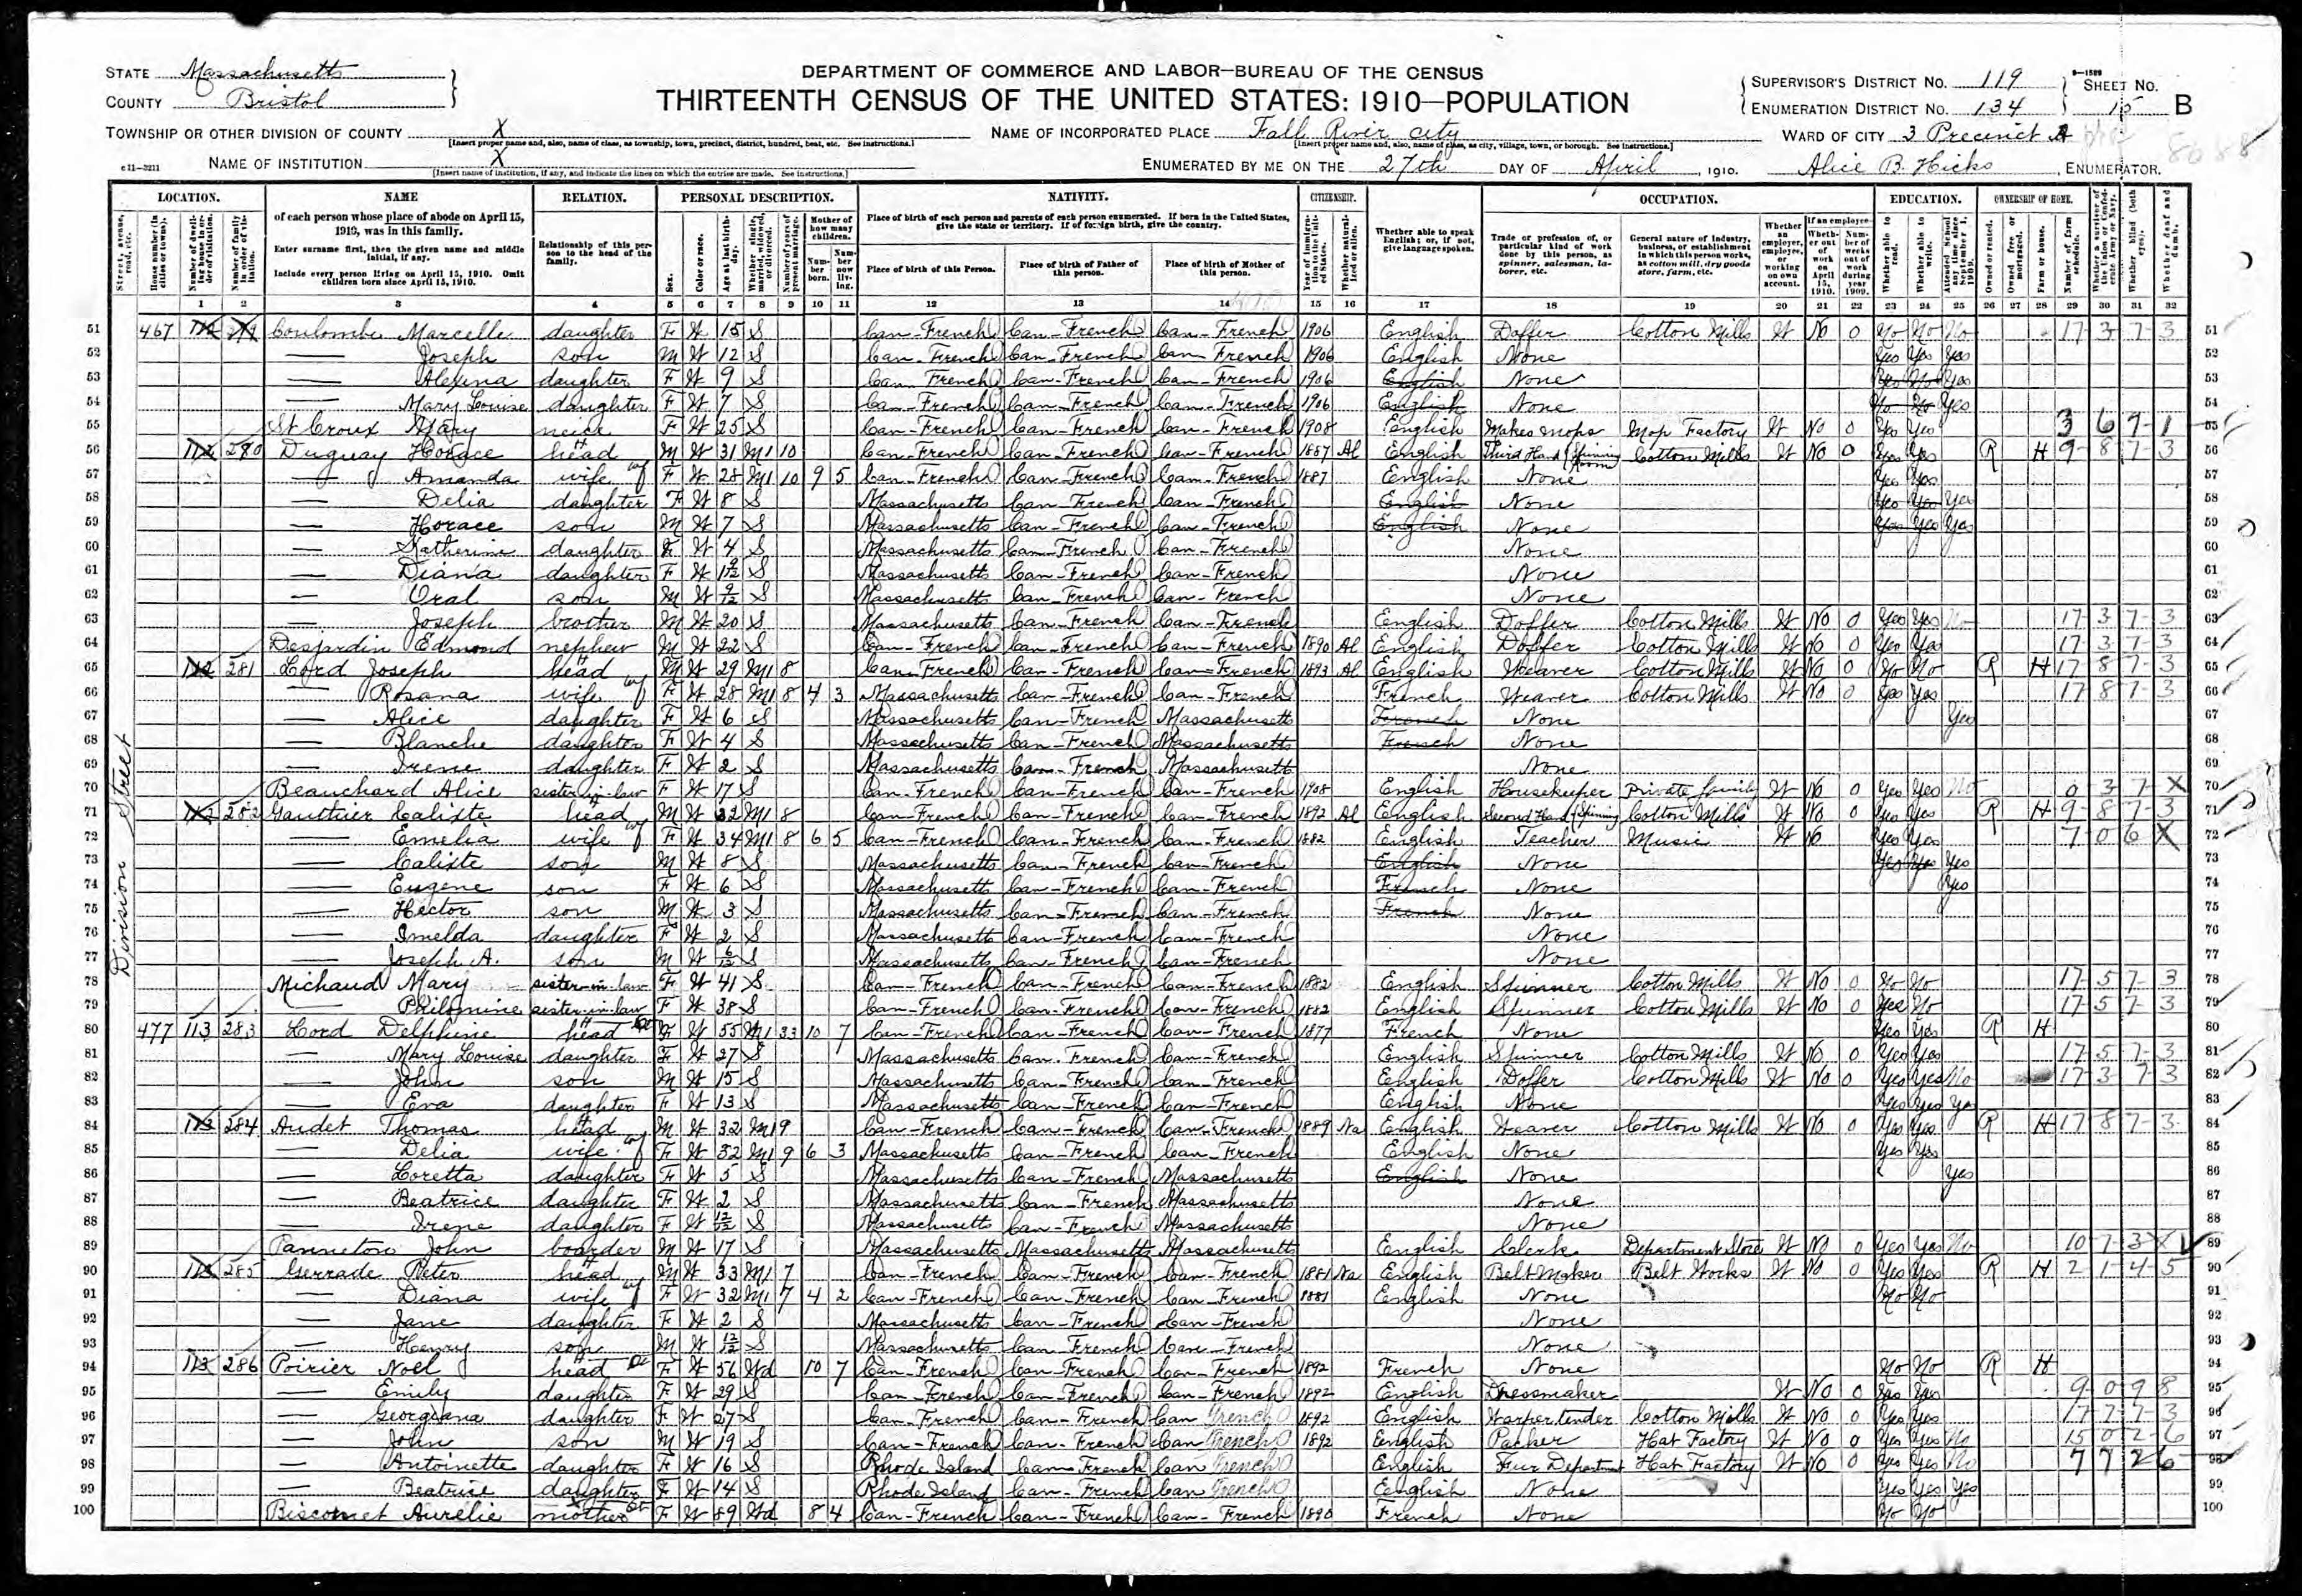 STATE Massachusetts
COUNTY Bristol
DEPARTMENT OF COMMERCE AND LABOR—BUREAU OF THE CENSUS
THIRTEENTH CENSUS OF THE UNITED STATES: 1910—POPULATION
SUPERVISOR'S DISTRICT NO. 119
ENUMERATION DISTRICT NO. 134
SHEET NO. 15 B
TOWNSHIP OR OTHER DIVISION OF COUNTY X
NAME OF INCORPORATED PLACE Fall River City
WARD OF CITY 3 Precinct A
NAME OF INSTITUTION X
ENUMERATED BY ME ON THE 27th DAY OF April, 1910. Alice B. Hicks, ENUMERATOR.
LOCATION. NAME RELATION. PERSONAL DESCRIPTION. NATIVITY. CITIZENSHIP. OCCUPATION. EDUCATION. OWNERSHIP OF HOME.
of each person whose place of abode on April 15, 1910, was in this family.
Enter surname first, then the given name and middle initial, if any.
Include every person living on April 15, 1910. Omit children born since April 15, 1910.
Relationship of this person to the head of the family.
Place of birth of each person and parents of each person enumerated. If born in the United States, give the state or territory. If of foreign birth, give the country.
Place of birth of this Person. Place of birth of Father of this person. Place of birth of Mother of this person.
Whether able to speak English; or, if not, give language spoken.
Trade or profession of, or particular kind of work done by this person, as spinner, salesman, laborer, etc.
General nature of industry, business, or establishment in which this person works, as cotton mill, dry goods store, farm, etc.
1 2 3 4 5 6 7 8 9 10 11 12 13 14 15 16 17 18 19 20 21 22 23 24 25 26 27 28 29 30 31 32
Division Street
51 467 112 279 Coulombe Marcelle daughter F W 15 S Can-French Can-French Can-French 1906 English Doffer Cotton Mills W No 0 No No No 17-3-7-3 51
52 — Joseph son M W 12 S Can-French Can-French Can-French 1906 English None Yes Yes Yes 52
53 — Alexina daughter F W 9 S Can-French Can-French Can-French 1906 English None Yes No Yes 53
54 — Mary Louise daughter F W 7 S Can-French Can-French Can-French 1906 English None No No Yes 54
55 St Croux Mary neice F W 25 S Can-French Can-French Can-French 1908 English Makes mops Mop Factory W No 0 Yes Yes 3 6 7-1 55
56 112 280 Duguay Horace head M W 31 M1 10 Can-French Can-French Can-French 1887 Al English Third Hand Spinning Room Cotton Mills W No 0 Yes Yes R H 9-8-7-3 56
57 — Amanda wife F W 28 M1 10 9 5 Can-French Can-French Can-French 1887 English None Yes Yes 57
58 — Delia daughter F W 8 S Massachusetts Can-French Can-French English None Yes Yes Yes 58
59 — Horace son M W 7 S Massachusetts Can-French Can-French English None Yes Yes Yes 59
60 — Katherine daughter F W 4 S Massachusetts Can-French Can-French None 60
61 — Diana daughter F W 1 9/12 S Massachusetts Can-French Can-French None 61
62 — Oral son M W 9/12 S Massachusetts Can-French Can-French None 62
63 — Joseph brother M W 20 S Massachusetts Can-French Can-French English Doffer Cotton Mills W No 0 Yes Yes No 17-3-7-3 63
64 Desjardin Edmond nephew M W 22 S Can-French Can-French Can-French 1890 Al English Doffer Cotton Mills W No 0 Yes Yes 17-3-7-3 64
65 112 281 Lord Joseph head M W 29 M1 8 Can-French Can-French Can-French 1893 Al English Weaver Cotton Mills W No 0 No No R H 17 8 7-3 65
66 — Rosana wife F W 28 M1 8 4 3 Massachusetts Can-French Can-French French Weaver Cotton Mills W No 0 Yes Yes 17 8 7-3 66
67 — Alice daughter F W 6 S Massachusetts Can-French Massachusetts French None Yes 67
68 — Blanche daughter F W 4 S Massachusetts Can-French Massachusetts French None 68
69 — Irene daughter F W 2 S Massachusetts Can-French Massachusetts None 69
70 Beauchard Alice sister-in-law F W 17 S Can-French Can-French Can-French 1908 English Housekeeper Private family W No 0 Yes Yes No 0-3-7-X 70
71 112 282 Gauthier Calixte head M W 32 M1 8 Can-French Can-French Can-French 1892 Al English Second Hand Spinning Cotton Mills W No 0 Yes Yes R H 9-8-7-3 71
72 — Emelia wife F W 34 M1 8 6 5 Can-French Can-French Can-French 1882 English Teacher Music W No Yes Yes 7 0 6 X 72
73 — Calixte son M W 8 S Massachusetts Can-French Can-French English None Yes Yes Yes 73
74 — Eugene son F W 6 S Massachusetts Can-French Can-French French None Yes 74
75 — Hector son M W 3 S Massachusetts Can-French Can-French French None 75
76 — Imelda daughter F W 2 S Massachusetts Can-French Can-French None 76
77 — Joseph A. son M W 6/12 S Massachusetts Can-French Can-French None 77
78 Michaud Mary sister-in-law F W 41 S Can-French Can-French Can-French 1882 English Spinner Cotton Mills W No 0 No No 17-5-7-3 78
79 — Philomine sister-in-law F W 38 S Can-French Can-French Can-French 1882 English Spinner Cotton Mills W No 0 Yes No 17 5 7-3 79
80 477 113 283 Lord Delphine head F W 55 M1 33 10 7 Can-French Can-French Can-French 1877 French None Yes Yes R H 80
81 — Mary Louise daughter F W 27 S Massachusetts Can-French Can-French English Spinner Cotton Mills W No 0 Yes Yes 17-5-7-3 81
82 — John son M W 15 S Massachusetts Can-French Can-French English Doffer Cotton Mills W No 0 Yes Yes No 17 3 7 3 82
83 — Eva daughter F W 13 S Massachusetts Can-French Can-French English None Yes Yes Yes 83
84 113 284 Audet Thomas head M W 32 M1 9 Can-French Can-French Can-French 1889 Na English Weaver Cotton Mills W No 0 Yes Yes R H 17 8 7-3 84
85 — Delia wife F W 32 M1 9 6 3 Massachusetts Can-French Can-French English None Yes Yes 85
86 — Loretta daughter F W 5 S Massachusetts Can-French Massachusetts English None Yes 86
87 — Beatrice daughter F W 2 S Massachusetts Can-French Massachusetts None 87
88 — Irene daughter F W 12/12 S Massachusetts Can-French Massachusetts None 88
89 Panneton John boarder M W 17 S Massachusetts Massachusetts Massachusetts English Clerk Department Store W No 0 Yes Yes No 10-7-3 X 89
90 113 285 Gerrade Peter head M W 33 M1 7 Can-French Can-French Can-French 1881 Na English Belt-Maker Belt Works W No 0 Yes Yes R H 2-1-4-5 90
91 — Diana wife F W 32 M1 7 4 2 Can-French Can-French Can-French 1881 English None No No 91
92 — Jane daughter F W 2 S Massachusetts Can-French Can-French None 92
93 — Henry son M W 12/12 S Massachusetts Can-French Can-French None 93
94 113 286 Poirier Noel head F W 56 Wd 10 7 Can-French Can-French Can-French 1892 French None No No R H 94
95 — Emily daughter F W 29 S Can-French Can-French Can-French 1892 English Dressmaker W No 0 Yes Yes 9-0 9 8 95
96 — Georgiana daughter F W 27 S Can-French Can-French Can French 1892 English Warper tender Cotton Mills W No 0 Yes Yes 17 7-7-3 96
97 — John son M W 19 S Can-French Can-French Can French 1892 English Packer Hat Factory W No 0 Yes Yes No 15 0 2-6 97
98 — Antoinette daughter F W 16 S Rhode Island Can-French Can French English Fur Department Hat Factory W No 0 Yes Yes No 7 7 2 6 98
99 — Beatrice daughter F W 14 S Rhode Island Can-French Can French English None Yes Yes Yes 99
100 Bisconnet Aurelie mother F W 89 Wd 8 4 Can-French Can-French Can-French 1890 French None No No 100